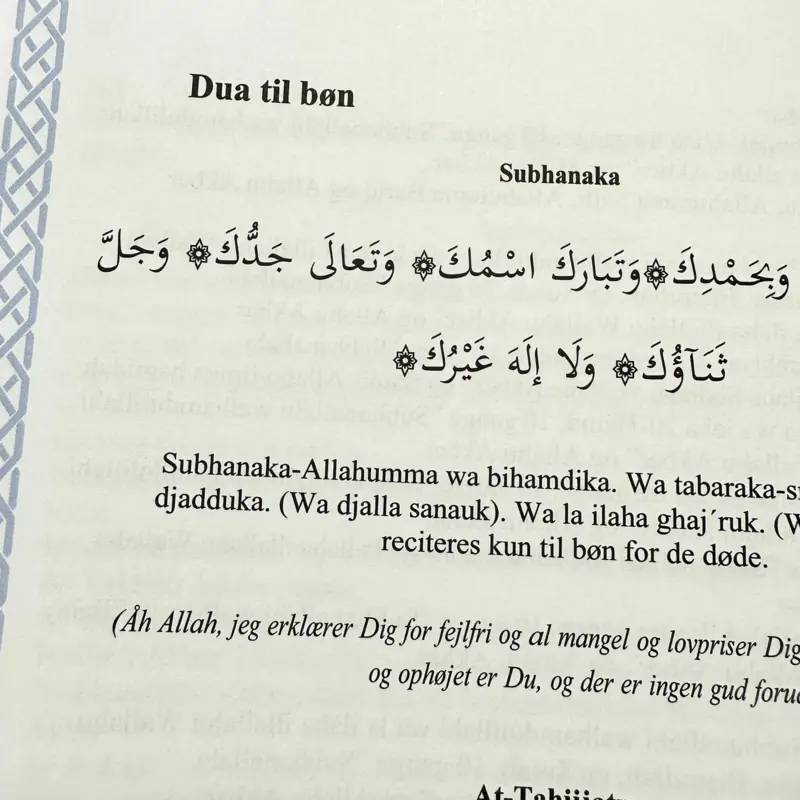 Dua til bøn
Subhanaka
وَبِحَمْدِكَ۞وَتَبَارَكَ اسْمُكَ۞ وَتَعَالَى جَدُّكَ۞ وَجَلَّ
ثَنَآؤُكَ۞ وَلَا إِلَهَ غَيْرُكَ۞
Subhanaka-Allahumma wa bihamdika. Wa tabaraka-s
djadduka. (Wa djalla sanauk). Wa la ilaha ghaj´ruk. (W
reciteres kun til bøn for de døde.
(Åh Allah, jeg erklærer Dig for fejlfri og al mangel og lovpriser Dig
og ophøjet er Du, og der er ingen gud foru
At-Tahijjat